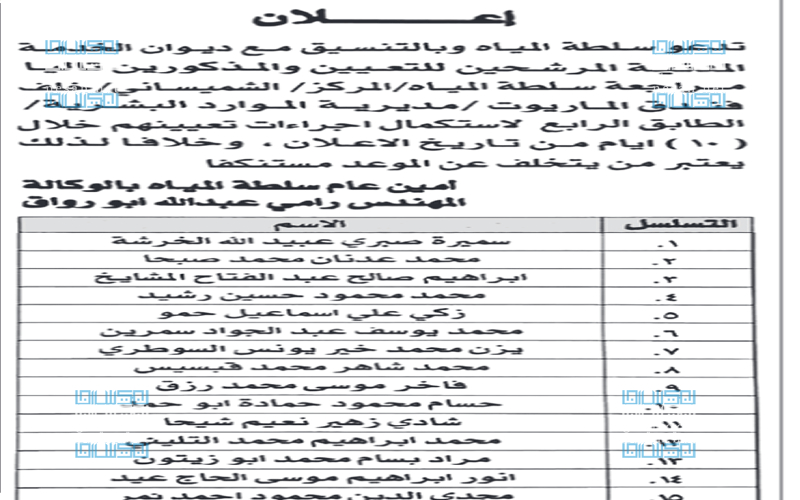 إعــــــلان
تدعو سلطة المياه وبالتنسيق مع ديوان الخدمة
المدنية المرشحين للتعيين والمذكورين تاليا
مراجعة سلطة المياه/المركز/ الشميساني/ خلف
فندق الماريوت /مديرية الموارد البشرية/
الطابق الرابع لاستكمال اجراءات تعيينهم خلال
( ١٠ ) ايام من تاريخ الاعلان ، وخلافا لذلك
يعتبر من يتخلف عن الموعد مستنكفا
امين عام سلطة المياه بالوكالة
المهندس رامي عبدالله ابو رواق
التسلسل الاسم
١. سميرة صبري عبيد الله الخرشة
٢. محمد عدنان محمد صبحا
٣. ابراهيم صالح عبد الفتاح المشايخ
٤. محمد محمود حسين رشيد
٥. زكي علي اسماعيل حمو
٦. محمد يوسف عبد الجواد سمرين
٧. يزن محمد خير يونس السوطري
٨. محمد شاهر محمد قبسيس
٩. فاخر موسى محمد رزق
١٠. حسام محمود حمادة ابو حمد
١١. شادي زهير نعيم شيحا
١٢. محمد ابراهيم محمد التليني
١٣. مراد بسام محمد ابو زيتون
١٤. انور ابراهيم موسى الحاج عيد
١٥. مجدي الدين محمود احمد نمر